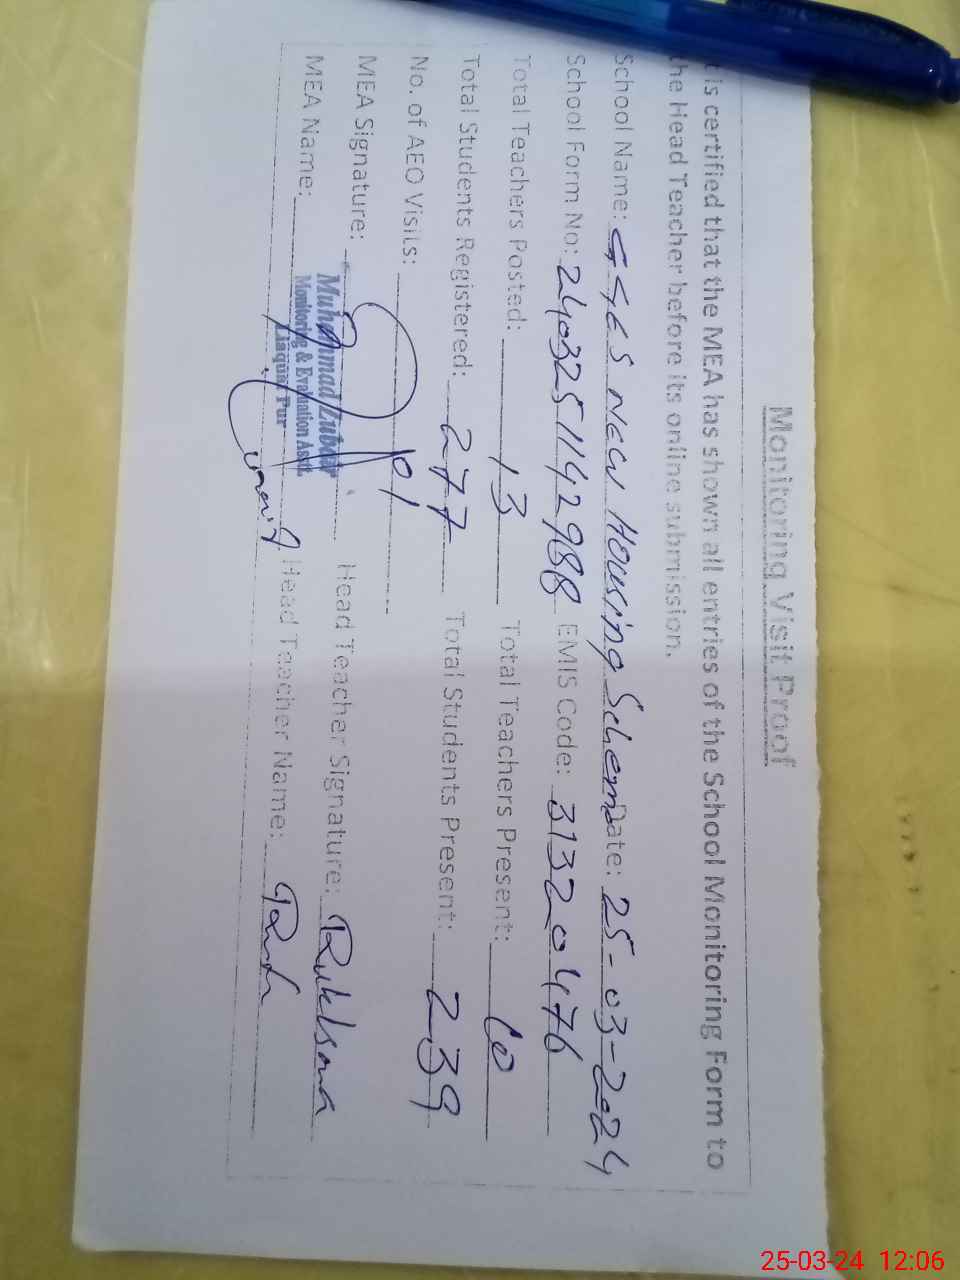 Monitoring Visit Proof
t is certified that the MEA has shown all entries of the School Monitoring Form to
the Head Teacher before its online submission.
School Name: GGES New Housing Scheme Date: 25-03-2024
School Form No: 240325114298 EMIS Code: 31320476
Total Teachers Posted: 13 Total Teachers Present: 10
Total Students Registered: 277 Total Students Present: 239
No. of AEO Visits: 01
MEA Signature: Head Teacher Signature: Rukhsana
MEA Name: Muhammad Zubair Head Teacher Name:
Monitoring & Evaluation Asstt.
Liaquat Pur
25-03-24 12:06